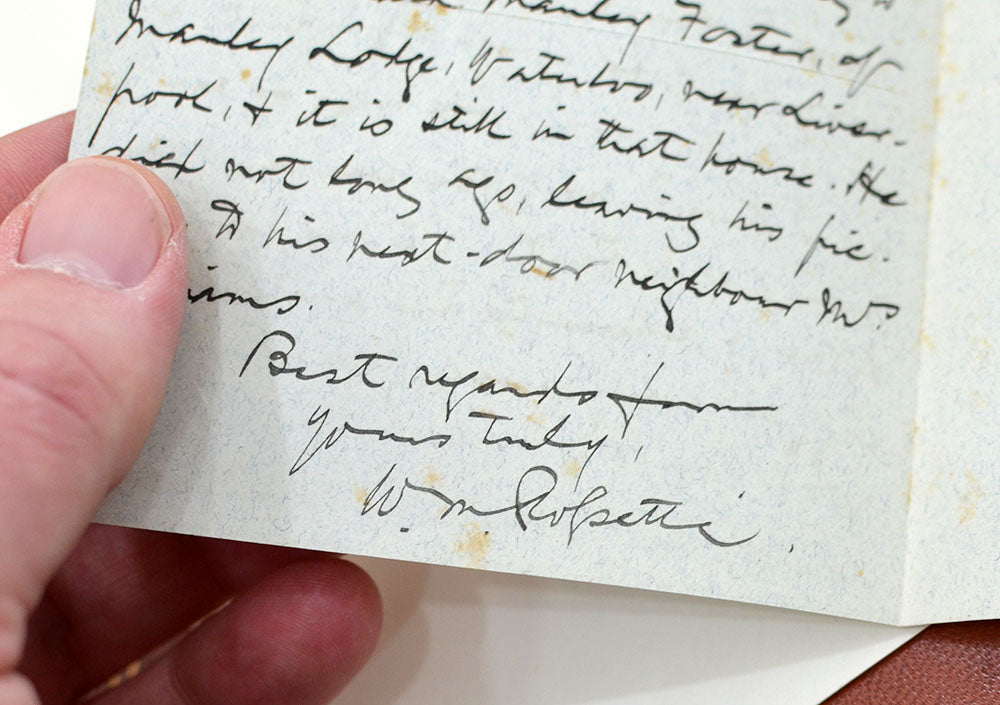 Manley Foster, of
Manley Lodge, Waterloo, near Liver-
pool, & it is still in that house. He
died not long ago, leaving his pic-
to his next-door neighbour Mrs
Best regards from
Yours truly,
W. M. Rossetti.